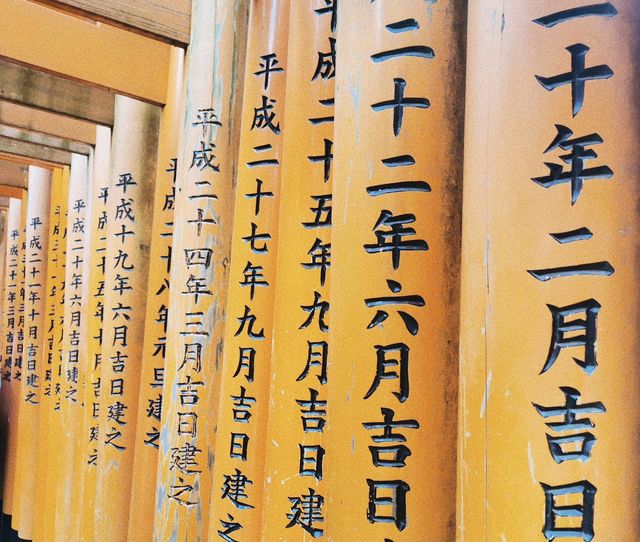 十年二月吉日
二十二年六月吉日
平成二十五年九月吉日建
平成二十七年九月吉日建之
平成二十四年三月吉日建之
平成二十八年元旦建之
平成十九年六月吉日建之
平成二十五年十月吉日建之
平成二十年六月吉日建之
平成二十一年十月吉日建之
平成二十一年三月吉日建之